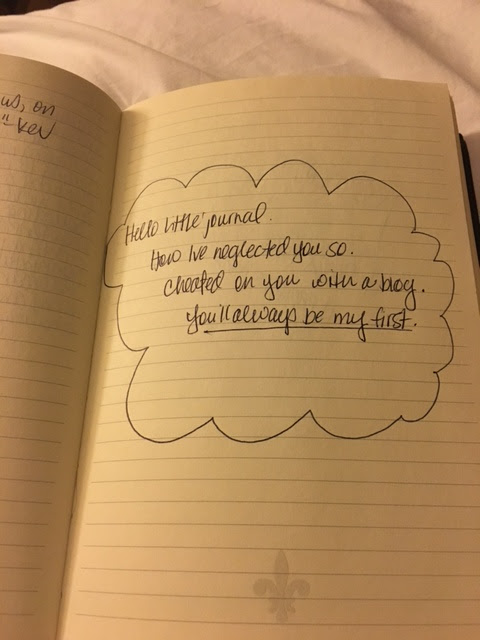 us, on
Hello little journal.
How Ive neglected you so.
Cheated on you with a blog.
You'll always be my first.